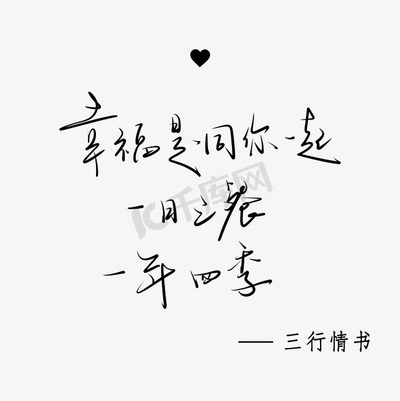 幸福是同你一起
一日三餐
千库网
一年四季
—— 三行情书